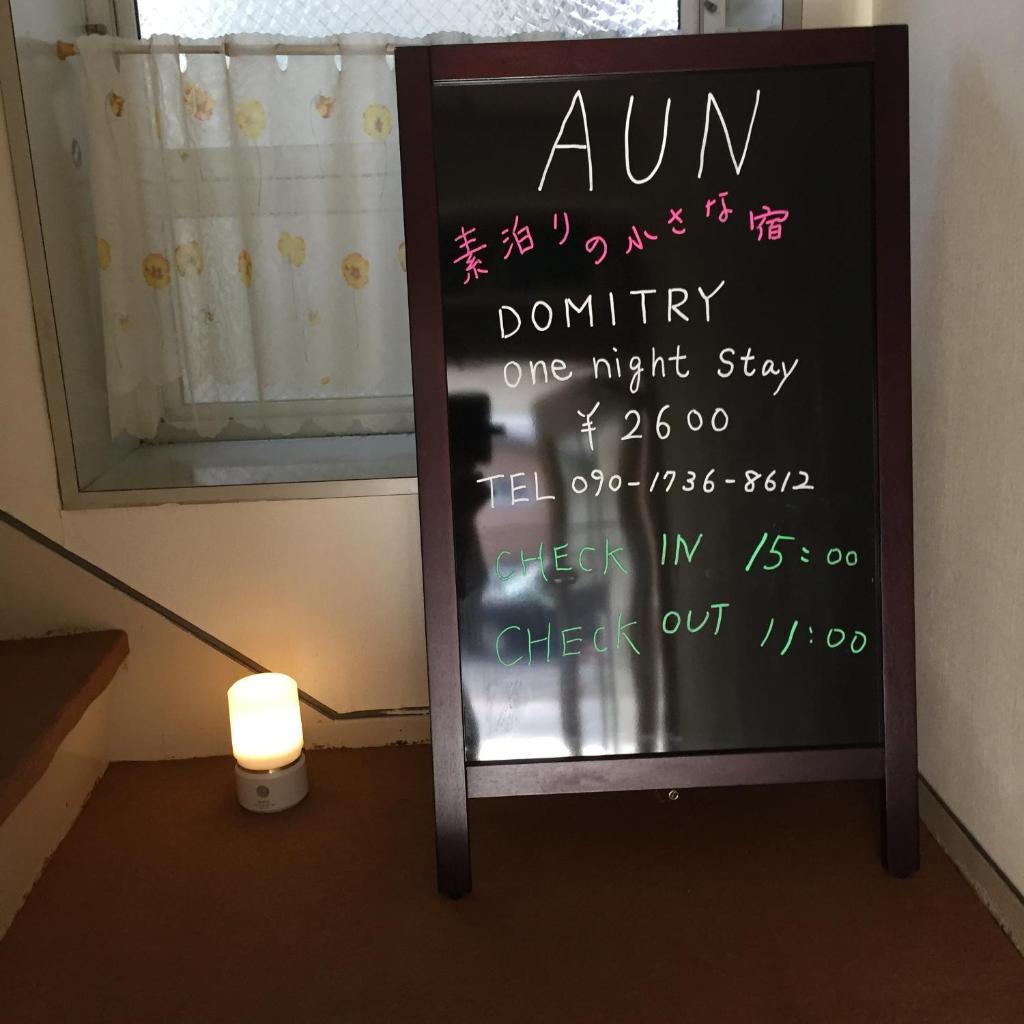 AUN
素泊りの小さな宿
DOMITRY
one night Stay
¥ 2600
TEL 090-1736-8612
CHECK IN 15:00
CHECK OUT 11:00